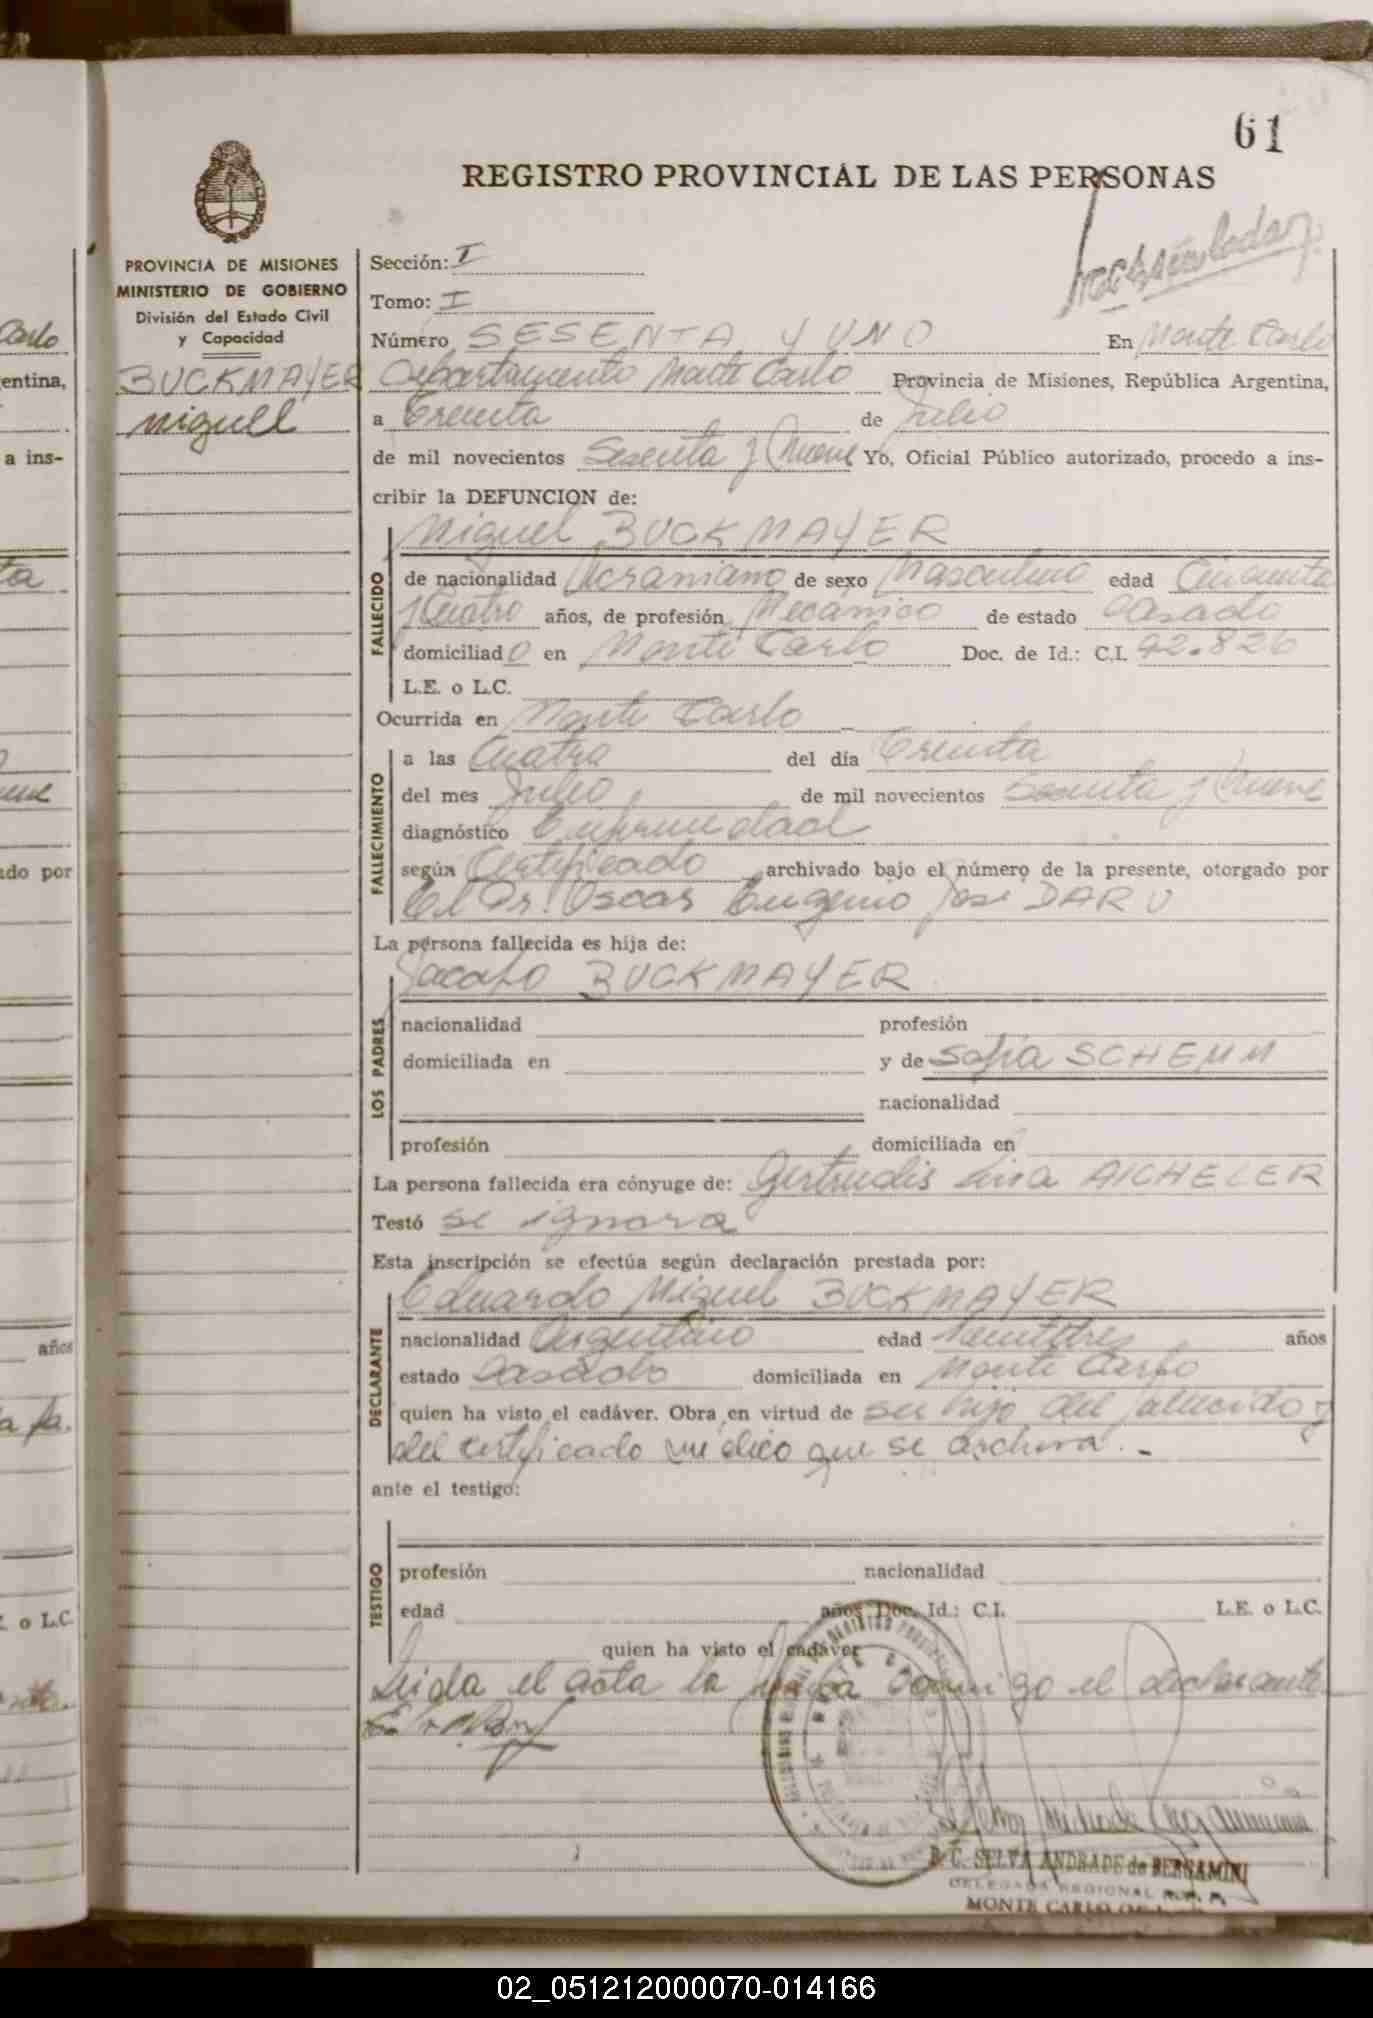 61
REGISTRO PROVINCIAL DE LAS PERSONAS
PROVINCIA DE MISIONES
MINISTERIO DE GOBIERNO
División del Estado Civil
y Capacidad
BUCKMAYER
Miguel
Sección: I
Tomo: I
Número SESENTA Y UNO En Monte Carlo
Departamento Monte Carlo Provincia de Misiones, República Argentina,
a Treinta de Julio
de mil novecientos Sesenta y Nueve Yo, Oficial Público autorizado, procedo a ins-
cribir la DEFUNCION de:
Miguel BUCKMAYER
FALLECIDO
de nacionalidad Ucraniano de sexo Masculino edad Cincuenta
y Cuatro años, de profesión Mecánico de estado Casado
domiciliado en Monte Carlo Doc. de Id.: C.I. 92.826
L.E. o L.C.
Ocurrida en Monte Carlo
FALLECIMIENTO
a las Cuatro del día Treinta
del mes Julio de mil novecientos Sesenta y Nueve
diagnóstico Enfermedad
según Certificado archivado bajo el número de la presente, otorgado por
El Dr. Oscar Eugenio José DARU
La persona fallecida es hija de:
Jacobo BUCKMAYER
LOS PADRES
nacionalidad profesión
domiciliada en y de Sofía SCHEMM
nacionalidad
profesión domiciliada en
La persona fallecida era cónyuge de: Gertrudis Lina AICHELER
Testó se ignora
Esta inscripción se efectúa según declaración prestada por:
Eduardo Miguel BUCKMAYER
DECLARANTE
nacionalidad Argentino edad Veintitres años
estado Casado domiciliada en Monte Carlo
quien ha visto el cadáver. Obra en virtud de ser hijo del fallecido y
del certificado médico que se archiva.-
ante el testigo:
TESTIGO
profesión nacionalidad
edad años Doc. Id.: C.I. L.E. o L.C.
quien ha visto el cadáver
Leida el acta la firma conmigo el declarante.
B. C. SELVA ANDRADE de BERGAMINI
DELEGADA REGIONAL
MONTE CARLO
02_051212000070-014166